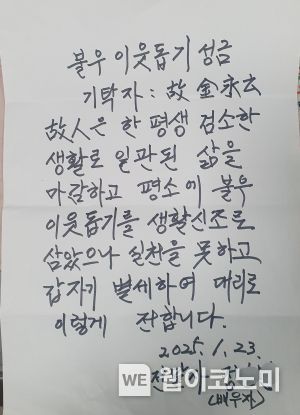 불우이웃돕기 성금
기탁자: 故 金永玄
故人은 한 평생 검소한
생활로 일관된 삶을
마감하고 평소에 불우
이웃돕기를 생활신조로
삼았으나 실천을 못하고
갑자기 별세하여 대리로
이렇게 전합니다.
2025. 1. 23.
WE 웹이코노미
(배우자)